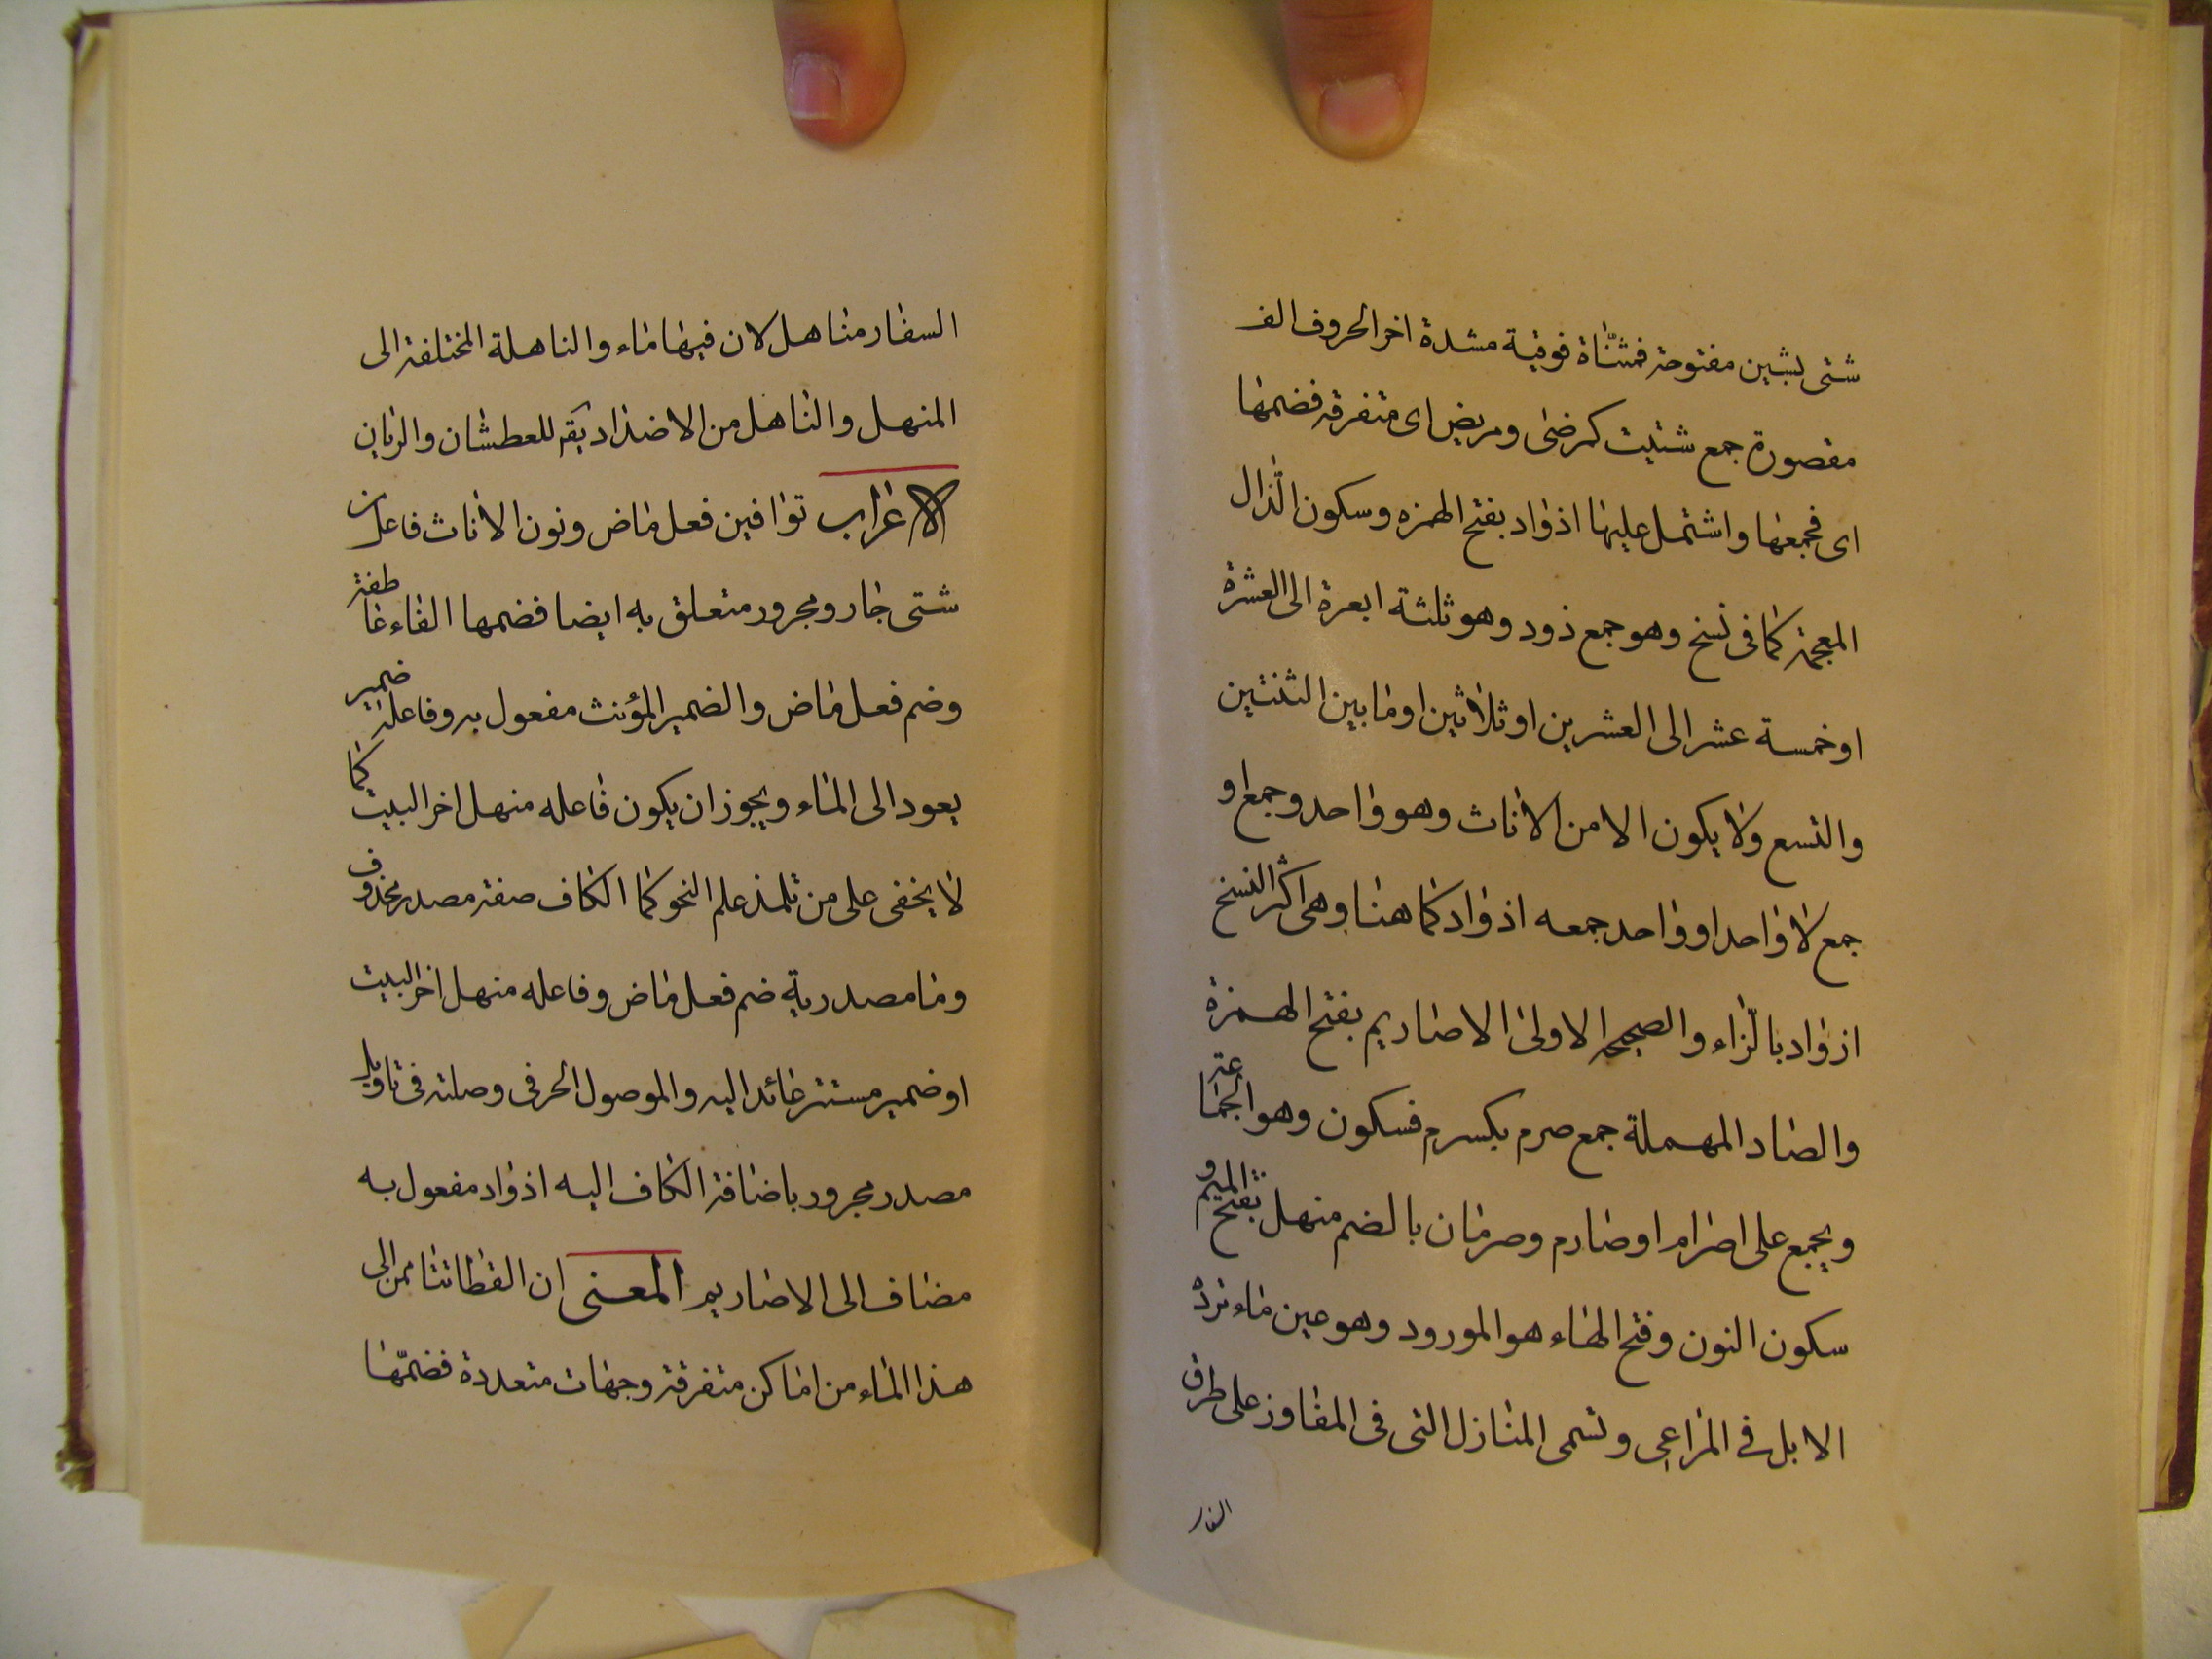 شتى بشين مفتوحة فمثنّاة فوقية مشدة اخر الحروف الف
مقصورة جمع شتيت كمرضى ومريض اى متفرقه فضمها
اى فجمعها واشتمل عليها اذواد بفتح الهمزه وسكون الذال
المعجمة كما فى نسخ وهو جمع ذود وهو ثلثة ابعرة الى العشرة
او خمسة عشر الى العشرين او ثلاثين او ما بين الثنتين
والتسع ولا يكون الا من الاناث وهو واحد وجمع او
جمع لا واحد او واحد جمعه اذواد كما هنا وهى اكثر النسخ
ازواد بالزاء والصحيحه الاولى الاصاريم بفتح الهمزة
والصاد المهملة جمع صرم بكسرم فسكون وهو الجماعة
ويجمع على اصرام اوصارم وصرمان بالضم منهل بفتح الميم و
سكون النون وفتح الهاء هو المورود وهو عين ماء ترده
الابل فى المراعى وتسمى المنازل التى فى المفاوز على طرق
السفار
السفار مناهل لان فيها ماء والناهلة المختلفة الى
المنهل والناهل من الاضداد يقہ للعطشان والريان
الاعراب توافين فعل ماض ونون الاناث فاعل من
شتى جار ومجرور متعلق به ايضا فضمها الفاء عاطفة
وضم فعل ماض والضمير المؤنث مفعول به وفاعله ضمير
يعود الى الماء ويجوز ان يكون فاعله منهل اخر البيت كما
لا يخفى على من تلمذ علم النحو كما الكاف صفة مصدر محذوف
وما مصدرية ضم فعل ماض وفاعله منهل اخر البيت
او ضمير مستتر عائد اليه والموصول الحرفى وصلته فى تاويل
مصدر مجرور باضافة الكاف اليه اذواد مفعول به
مضاف الى الاصاريم المعنى ان القطا تتامن الى
هذا الماء من اماكن متفرقة وجهات متعددة فضمّها